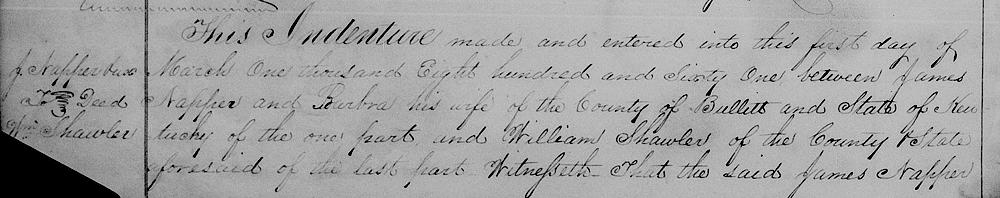 This Indenture made and entered into this first day of
J. Napper & ux March One thousand Eight hundred and Sixty One between James
To Deed Napper and Barbra his wife of the County of Bullitt and State of Ken
Wm Shawler tucky of the one part and William Shawler of the County & State
aforesaid of the last part Witnesseth That the said James Napper